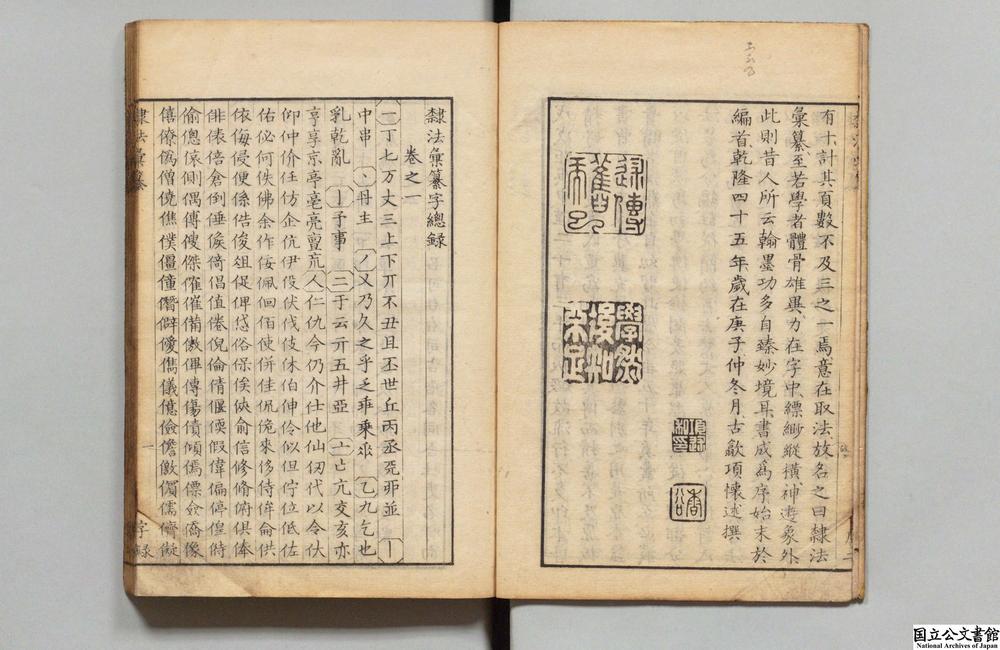 有十計其頁數不及三之一焉意在取法故名之曰隸法
彙纂至若學者體骨雄異力在字中縹緲縱橫神遊象外
此則昔人所云翰墨功多自臻妙境耳書成爲序始末於
編首乾隆四十五年歲在庚子仲冬月古歙項懷述撰
學然後知不足
隸法彙纂字總錄
卷之一
一丁七万丈三上下丌不丑且丕世丘丙丞並丨
中串丶丹主丿乂乃久之乎乏乖乘乙九乞也
乳乾亂亅予事二于云亓五井亞亠亡亢交亥亦
亨享京亭亮亶人仁仇今仍介仕他仙仞代以令
仰仲价任仿企伉伊伋伏伐伎休伯伸伶似但佇位低佐
佑佖何佚佛余作佞佩佪佰使併佳侈侍侔侖供
依侮侵便係俈俊俎促俾俗保俟俠俞信修脩俯俱俸
俳俵倍倉倒倕候倚倡值倦倪倫倩偃假偉偏偕停偟時
偷傯傢側偶傅傻傑傕催備傲傳傷債傾僑像
僖僚僞僧僥僬僕僵僮僭僻儁儀億儉儋儆儒儕儗
隸法彙纂
一
字錄
国立公文書館
National Archives of Japan